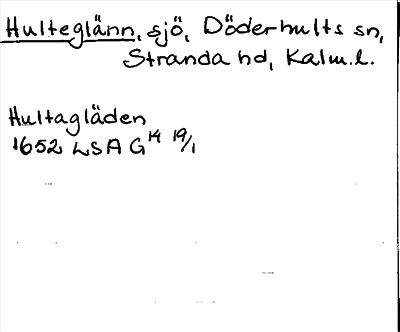 Hulteglänn, sjö, Döderhults sn,
Stranda hd, Kalm.l.
Hultagläden
1652 LSA G¹⁴ 19/1